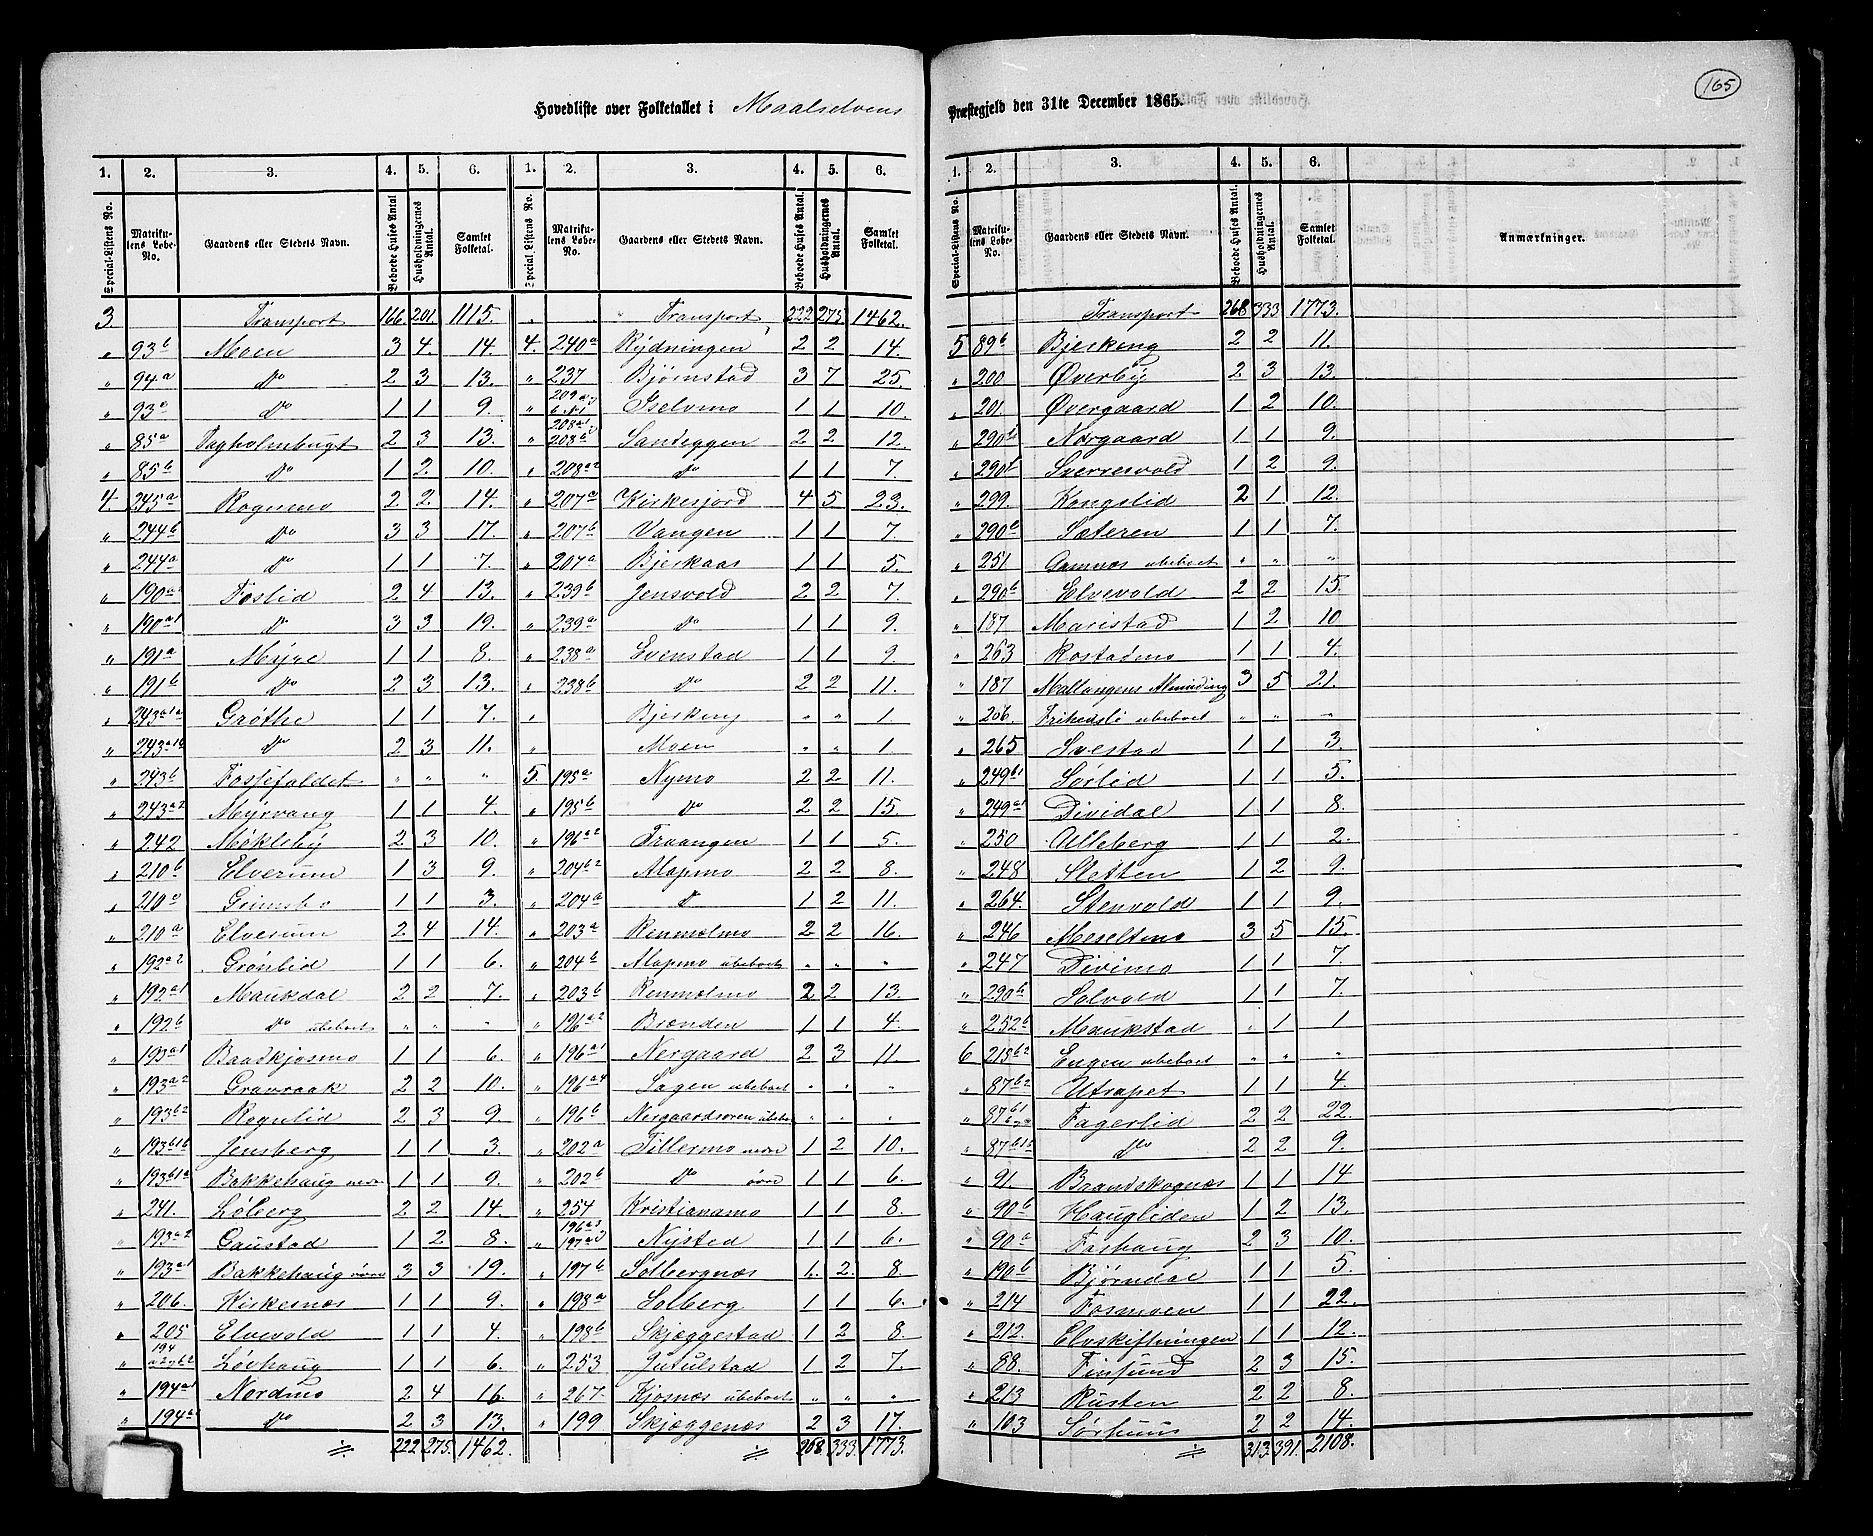 165
Hovedliste over Folketallet i Maalselvens Præstegjeld den 31te December 1865.
1. 2. 3. 4. 5. 6. 1. 2. 3. 4. 5. 6.
Special-Listens No. Matrikulens Løbe-No. Gaardens eller Stedets Navn. Beboede Huses Antal Husholdningernes Antal. Samlet Folketal. Special-Listens No. Matrikulens Løbe-No. Gaardens eller Stedets Navn. Beboede Huses Antal. Husholdningernes Antal. Samlet Folketal.
3. Transport 166 201 1115. " " Transport 222 275 1462.
" 93b Moen 3 4. 14. 4. 240a Rydningen 2 2 14.
" 94a Do 2 3 13. " 237 Bjørnstad 3 7 25.
" 93a Do 1 1 9. " Iselvmo 1 1 10.
" 85a Vagholmbugt 2 3 13. " Sandeggen 2 2 12.
" 85b Do 1 2. 10. " 208a2 Do 1 1 7.
4. 245a Rognmo 2 2. 14. " 207a Kirkesjord 4 5 23.
" 244b Do 3 3 17. " 207b Vangen 1 1 7.
" 244a Do 1 1 7. " 207a Bjerkaas 1 1 5.
" 190a2 Foslid 2 4 13. " 239b Jensvold 2 2 7.
" 190a1 Do 3 3 19. " 239a Do 1 1 9.
" 191a Myre 1 1 8. " 238a Evenstad 1 1 9.
" 191b Do 2 3 13. " 238b Do 2 2 11.
" 243a1a Grøthe 1 1 7. " Bjerkeng " " 1.
" 243a1b Do 2 3 11. " Moen " " 1
" 243b Fossefaldet " " " 5. 195a Nymo 2 2 11.
" 243a2 Myrvang 1 1 4. " 195b Do 2 2 15.
" 242 Møkleby 2 3 10. " 196a2 Fraangen 1 1 5.
" 210b Elverum 1 3 9. " 204b2 Alapmo 2 2 8.
" 210a Grimsbo 1 1 3. " 204a Do 1 2 11.
" 210a Elverum 2 4 14. " 203a Renmælmo 2 2 16.
" 192a2 Grønlid 1 1 6. " 204b Alapmo ubeboet " " "
" 192a1 Maukdal 2 2 7. " 203b Renmælmo 2 2 13.
" 192b Do ubeboet " " " " 196a2 Brænden 1 1 4.
" 193a1 Baadkjosmo 1 1 6. " 196a1 Nergaard 2 3 11.
" 193a2 Gravraak 2 2 10. " 196a4 Sagen ubeboet " " "
" 193b2 Rognlid 2 3 9. " 196b Nergaardsøren ubeboet " " "
" 193b1b Jensberg 1 1 3. " 202a Tillermo nedre 1 2 10.
" 193b1a Bakkehaug nedre 1 1 9. " 202b Do øvre 1 1 6.
" 241. Løberg 2 2 14. " 254 Kristianamo 1 1 8.
" 193a2 Gaustad 1 2 8. " Nysted 1 1 6.
" 193a1 Bakkehaug øvre 3 3 19. " 197b Solbergnæs 1. 2. 8.
" 206. Kirkesnæs 1 1 9. " 198a Solberg 1 1 6.
" 205 Elvevold 1 1 4. " 198b Skjæggestad 1 2 8.
" 194 a2 og b2 Løvhaug 1 1 6. " 253 Jutulstad 1 2 7.
" 194a1 Nordmo 2 4 16 " 267. Kjosnæs ubeboet " " "
" 194a Do 2 3 13. " 199 Skjæggenæs 2 3 17.
222. 275. 1462. 268. 333. 1773.
1. 2. 3. 4. 5. 6.
Special-Listens No. Matrikulens Løbe-No. Gaardens eller Stedets Navn. Beboede Huses Antal. Husholdningernes Antal. Samlet Folketal. Anmærkninger.
Transport 268 333 1773.
5 89b Bjerkeng 2 2 11.
" 200 Øverby 2 3 13.
" 201 Øvergaard 1 2 10.
" 290b Norgaard 1 1 9.
" 290b Sverresvold 1 2 9.
" 299. Kongslid 2 1 12.
" 290b Sæteren 1 1 7.
" 251 Gamnæs ubeboet " " "
" 290b Elvevold 2 2 15.
" 187 Maristad 1 2 10
" 263 Rostadmo 1 1 4.
" 187 Mallangens Alminding 3 5 21.
" 206. Frihedsli ubeboet " " "
" 265 Svestad 1 1 3.
" 249b1 Sørlid 1 1 5.
" 249a1 Dividal 1 1 8.
" 250 Ulleberg 1 1 2.
" 248 Sletten 1 2 9.
" 264. Stenvold 1 1 9.
" 246 Meseltmo 3 5 15.
" 247 Divimo 1 1 7.
" 290b Solvold 1 1 7.
" 252b Maukstad " 1 1
6 215b2 Engen ubeboet " " "
" 87b2 Utrapet 1 1 4.
" Fagerlid 2 2 22.
" 87b1b Do 2 2 9.
" 91. Brandskognæs 1 1 14
" 90b Haugliden 1 2 13.
" 90a Foshaug 2 3 10.
" 190b Bjørndal 1 1 5
" 214 Fosmoen 1 1 22.
" 212. Elvskiftningen 1 1 12.
" 88 Finsund 2 3 15.
" 213 Rusten 2 2 8.
" 103 Sørhuus 2 2 14.
313. 391. 2108.